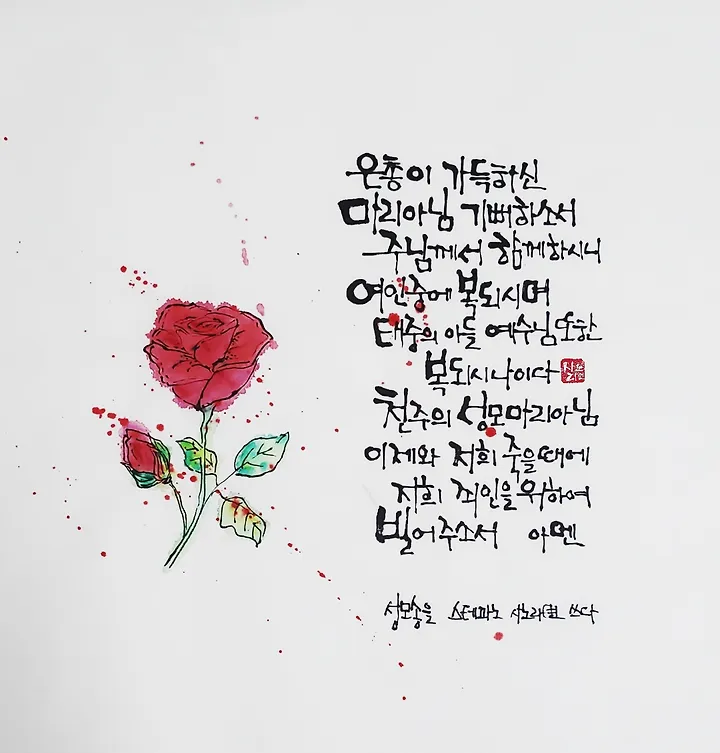 은총이 가득하신
마리아님 기뻐하소서
주님께서 함께하시니
여인중에 복되시며
태중의 아들 예수님 또한
복되시나이다
천주의 성모마리아님
이제와 저희 죽을때에
저희 죄인을 위하여
빌어주소서 아멘
성모송을 스테파노 쓰다